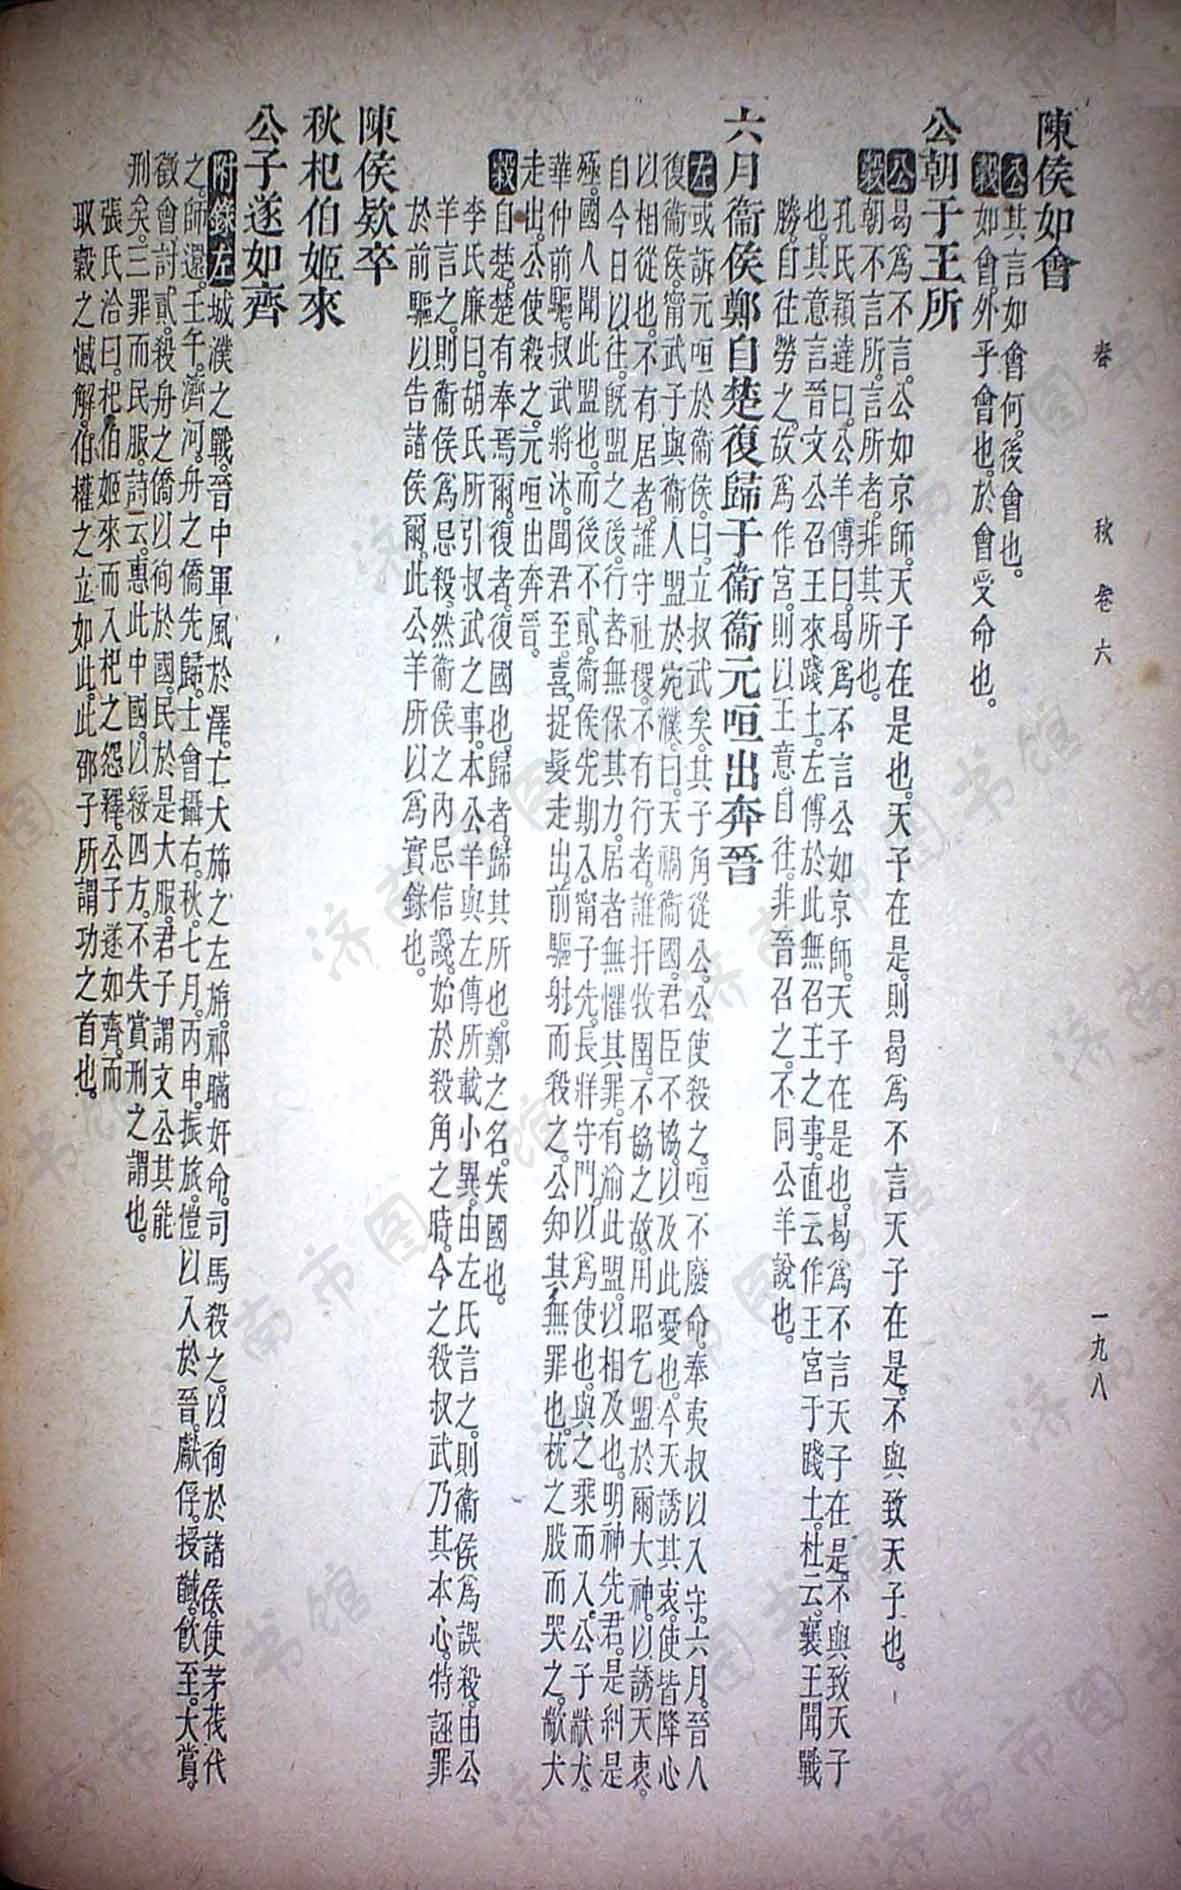 春　秋　卷六　一九八
陳侯如會
公其言如會何。後會也。
穀如會。外乎會也。於會受命也。
公朝于王所
公曷爲不言。公如京師。天子在是也。天子在是。則曷爲不言天子在是。不與致天子也。
穀朝不言所。言所者。非其所也。
孔氏穎達曰。公羊傳曰。曷爲不言公如京師。天子在是也。曷爲不言天子在是。不與致天子
也。其意言晉文公召王來踐土。左傳於此無召王之事。直云作王宮于踐土。杜云。襄王聞戰
勝。自往勞之。故爲作宮。則以王意自往。非晉召之。不同公羊說也。
六月衞侯鄭自楚復歸于衞衞元咺出奔晉
左或訴元咺於衞侯。曰。立叔武矣。其子角從公。公使殺之。咺不廢命。奉夷叔以入守。六月。晉人
復衞侯。甯武子與衞人盟於宛濮。曰。天禍衞國。君臣不協。以及此憂也。今天誘其衷。使皆降心
以相從也。不有居者。誰守社稷。不有行者。誰扞牧圉。不協之故。用昭乞盟於爾大神。以誘天衷。
自今日以往。旣盟之後。行者無保其力。居者無懼其罪。有渝此盟。以相及也。明神先君。是糾是
殛。國人聞此盟也。而後不貳。衞侯先期入。甯子先。長牂守門。以爲使也。與之乘而入。公子歂犬。
華仲前驅。叔武將沐。聞君至。喜。捉髮走出。前驅射而殺之。公知其無罪也。枕之股而哭之。歂犬
走出。公使殺之。元咺出奔晉。
穀自楚。楚有奉焉爾。復者。復國也。歸者。歸其所也。鄭之名。失國也。
李氏廉曰。胡氏所引叔武之事。本公羊與左傳所載小異。由左氏言之。則衞侯爲誤殺。由公
羊言之。則衞侯爲忌殺。然衞侯之內忌信讒。始於殺角之時。今之殺叔武乃其本心。特誣罪
於前驅以告諸侯爾。此公羊所以爲實錄也。
陳侯欵卒
秋杞伯姬來
公子遂如齊
附錄左城濮之戰。晉中軍風於澤。亡大旆之左旃。祁瞞奸命。司馬殺之。以徇於諸侯。使茅茷代
之。師還。壬午。濟河。舟之僑先歸。士會攝右。秋。七月。丙申。振旅。愷以入於晉。獻俘。授馘。飮至。大賞。
徵會。討貳。殺舟之僑以徇於國。民於是大服。君子謂文公其能
刑矣。三罪而民服。詩云。惠此中國。以綏四方。不失賞刑之謂也。
張氏洽曰。杞伯姬來而入杞之怨釋。公子遂如齊。而
取穀之憾解。伯權之立如此。此邵子所謂功之首也。